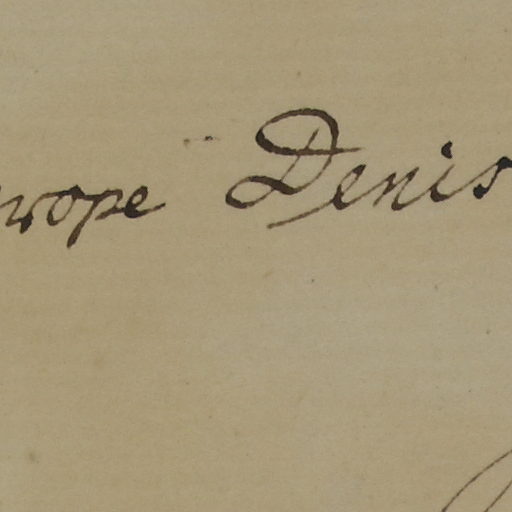 wope Denis